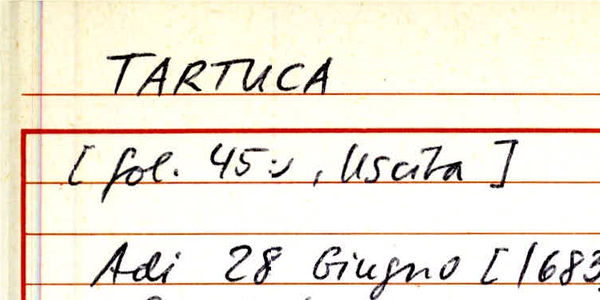 TARTUCA
[ fol. 45v, Uscita ]
Adi 28 Giugno [1683